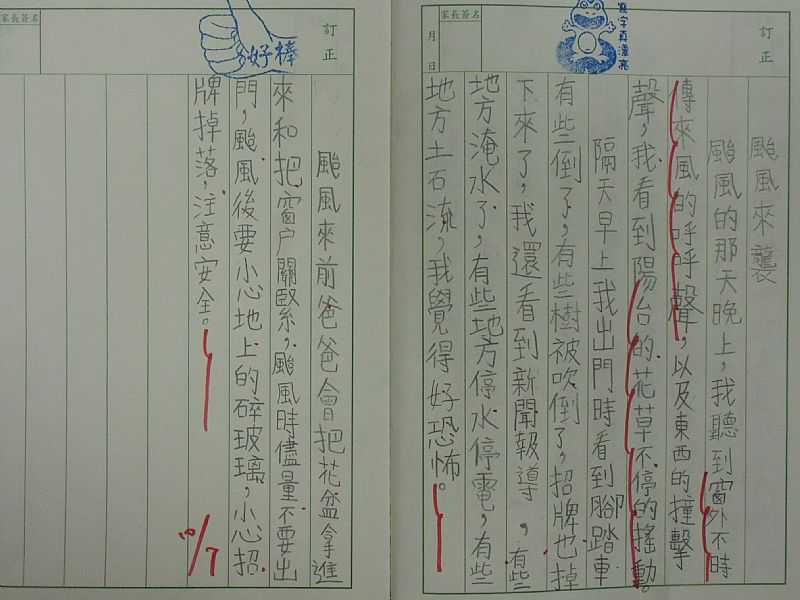 家長簽名
月
日
訂正
寫字真漂亮
颱風來襲
颱風的那天晚上，我聽到窗外不時
傳來風的呼呼聲，以及東西的撞擊
聲，我看到陽台的花草不停的搖動。
隔天早上我出門時看到腳踏車
有些倒了，有些樹被吹倒了，招牌也掉
下來了，我還看到新聞報導，有些
地方淹水了，有些地方停水停電，有些
地方土石流，我覺得好恐怖。
家長簽名
訂正
好棒
颱風來前爸爸會把花盆拿進
來和把窗户關緊，颱風時儘量不要出
門，颱風後要小心地上的碎玻璃，小心招
牌掉落，注意安全。
10/7